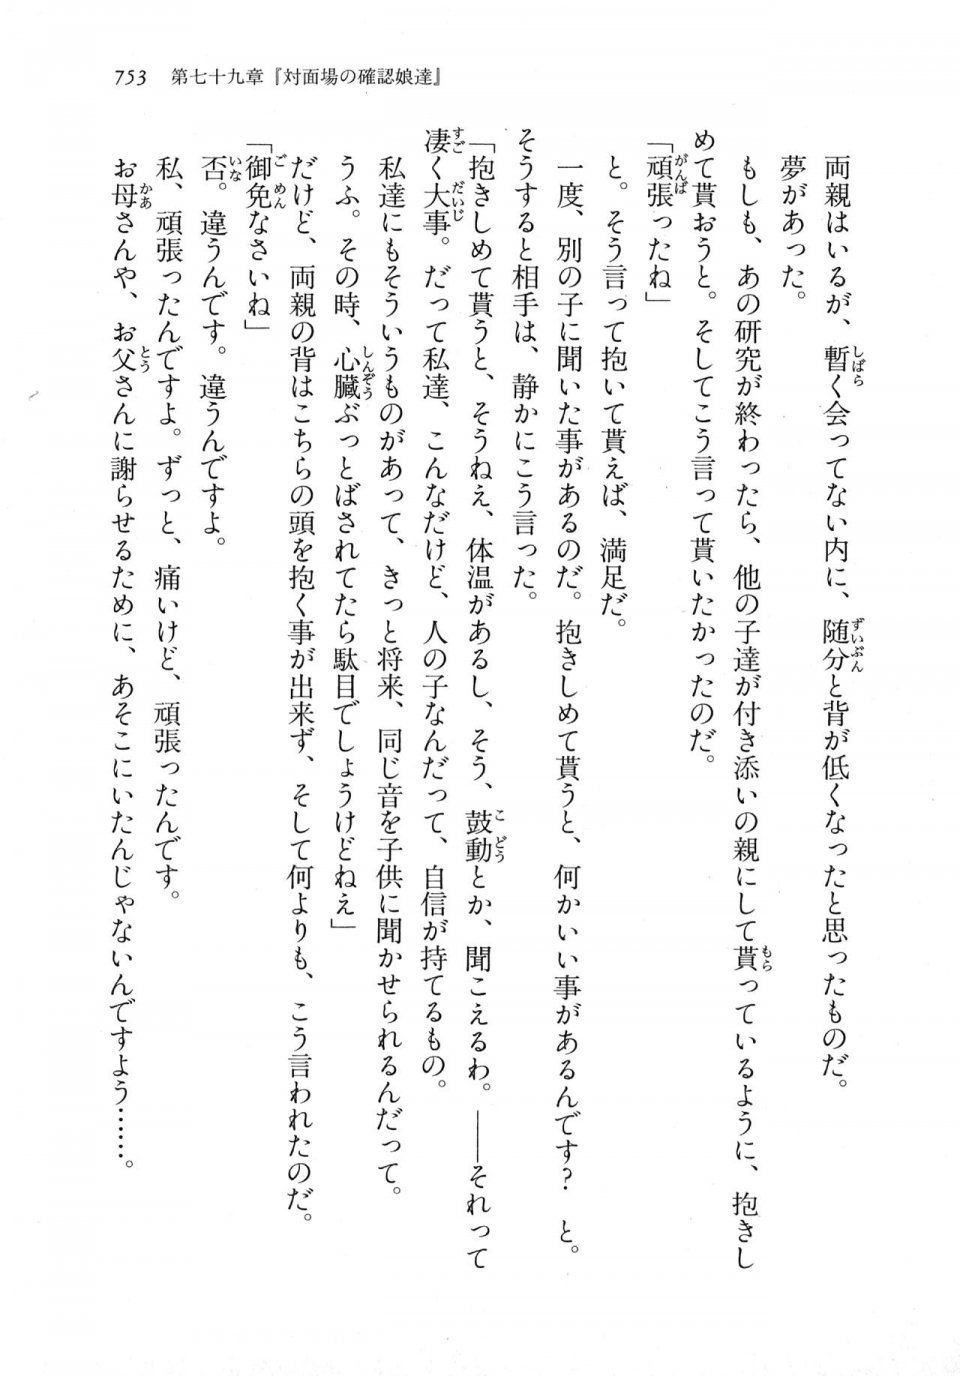 753　第七十九章『対面場の確認娘達』
両親はいるが、暫く会ってない内に、随分と背が低くなったと思ったものだ。
夢があった。
もしも、あの研究が終わったら、他の子達が付き添いの親にして貰っているように、抱きし
めて貰おうと。そしてこう言って貰いたかったのだ。
「頑張ったね」
と。そう言って抱いて貰えば、満足だ。
一度、別の子に聞いた事があるのだ。抱きしめて貰うと、何かいい事があるんです？　と。
そうすると相手は、静かにこう言った。
「抱きしめて貰うと、そうねえ、体温があるし、そう、鼓動とか、聞こえるわ。――それって
凄く大事。だって私達、こんなだけど、人の子なんだって、自信が持てるもの。
私達にもそういうものがあって、きっと将来、同じ音を子供に聞かせられるんだって。
うふ。その時、心臓ぶっとばされてたら駄目でしょうけどねえ」
だけど、両親の背はこちらの頭を抱く事が出来ず、そして何よりも、こう言われたのだ。
「御免なさいね」
否。違うんです。違うんですよ。
私、頑張ったんですよ。ずっと、痛いけど、頑張ったんです。
お母さんや、お父さんに謝らせるために、あそこにいたんじゃないんですよう……。